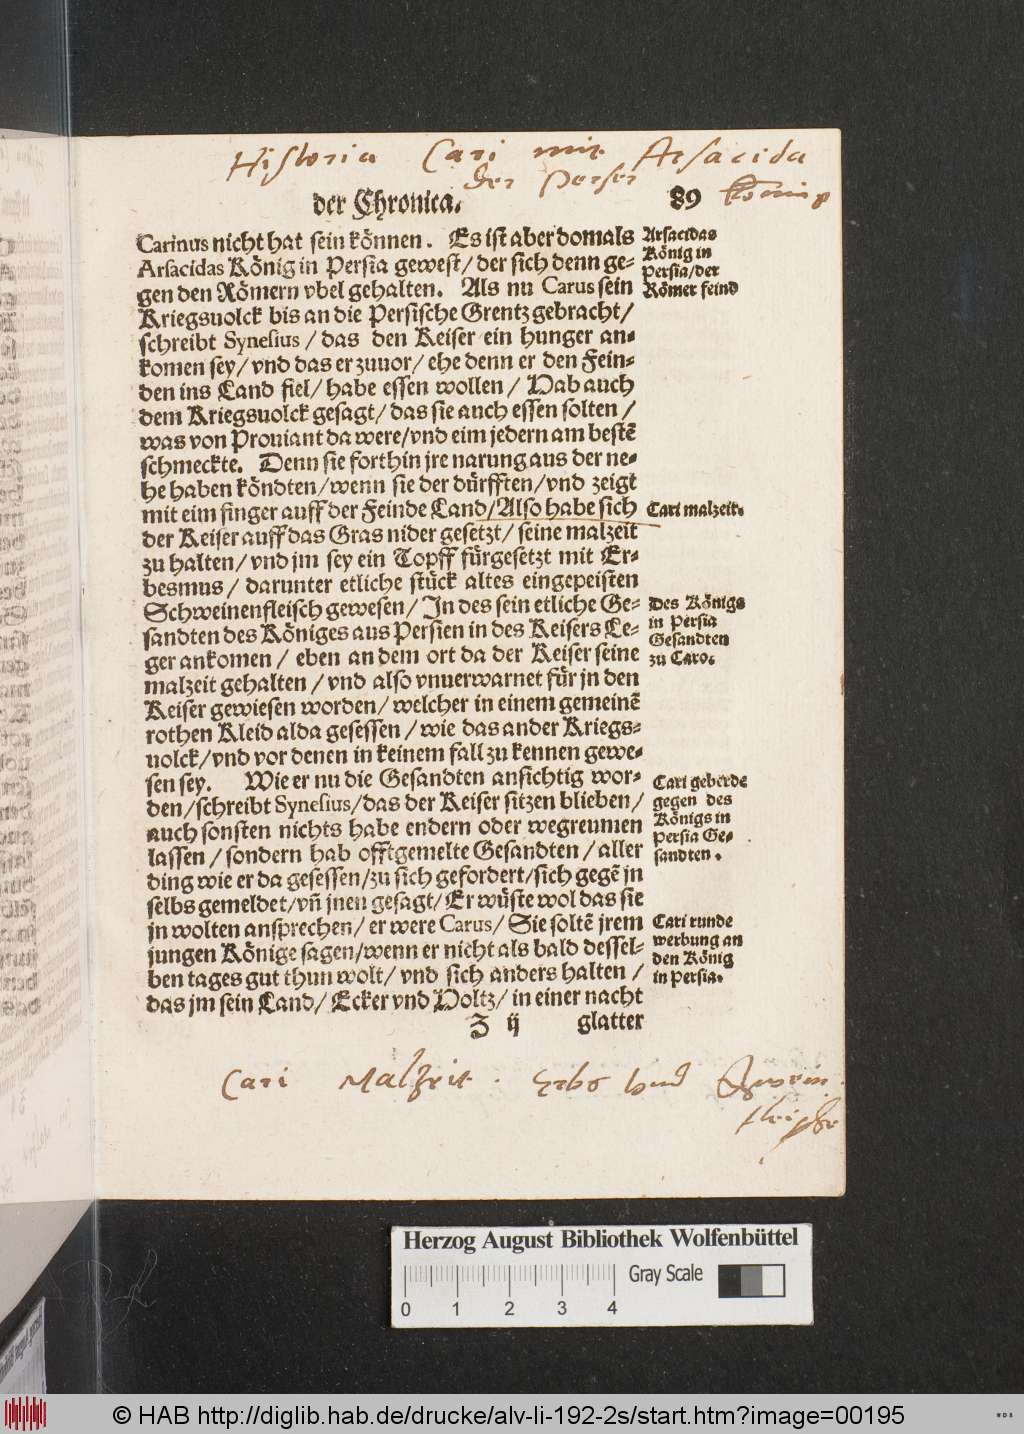 Historia Cari mit Arsacida
der Perser König
der Chronica. 89
Carinus nicht hat sein können. Es ist aber domals
Arsacidas König in Persia gewest/der sich denn ge-
gen den Römern vbel gehalten. Als nu Carus sein
Kriegsuolck bis an die Persische Grentz gebracht/
schreibt Synesius/das den Keiser ein hunger an-
komen sey/vnd das er zuuor/ehe denn er den Fein-
den ins Land fiel/habe essen wollen/Hab auch
dem Kriegsuolck gesagt/das sie auch essen solten/
was von Prouiant da were/vnd eim jedern am bestē
schmeckte. Denn sie forthin jre narung aus der ne-
he haben köndten/wenn sie der dürfften/vnd zeigt
mit eim finger auff der Feinde Land/Also habe sich
der Keiser auff das Gras nider gesetzt/seine malzeit
zu halten/vnd jm sey ein Topff fürgesetzt mit Er-
besmus/darunter etliche stück altes eingepeisten
Schweinenfleisch gewesen/In des sein etliche Ge-
sandten des Königes aus Persien in des Keisers Le-
ger ankomen/eben an dem ort da der Keiser seine
malzeit gehalten/vnd also vnuerwarnet für jn den
Keiser gewiesen worden/welcher in einem gemeinē
rothen Kleid alda gesessen/wie das ander Kriegs-
uolck/vnd vor denen in keinem fall zu kennen gewe-
sen sey. Wie er nu die Gesandten ansichtig wor-
den/schreibt Synesius/das der Keiser sitzen blieben/
auch sonsten nichts habe endern oder wegreumen
lassen/sondern hab offtgemelte Gesandten/aller
ding wie er da gesessen/zu sich gefordert/sich gegē jn
selbs gemeldet/vñ jnen gesagt/Er wüste wol das sie
jn wolten ansprechen/er were Carus/Sie soltē jrem
jungen Könige sagen/wenn er nicht als bald dessel-
ben tages gut thun wolt/vnd sich anders halten/
das jm sein Land/Ecker vnd Holtz/in einer nacht
Z ij glatter
Arsacidas
König in
Persia/der
Römer feind
Cari malzeit.
Des Königs
in Persia
Gesandten
zu Caro.
Cari geberde
gegen des
Königs in
Persia Ge-
sandten.
Cari runde
werbung an
den König
in Persia.
Cari Malzeit. Erbs vnd Schwein
fleisch
Herzog August Bibliothek Wolfenbüttel
Gray Scale
0 1 2 3 4
© HAB http://diglib.hab.de/drucke/alv-li-192-2s/start.htm?image=00195